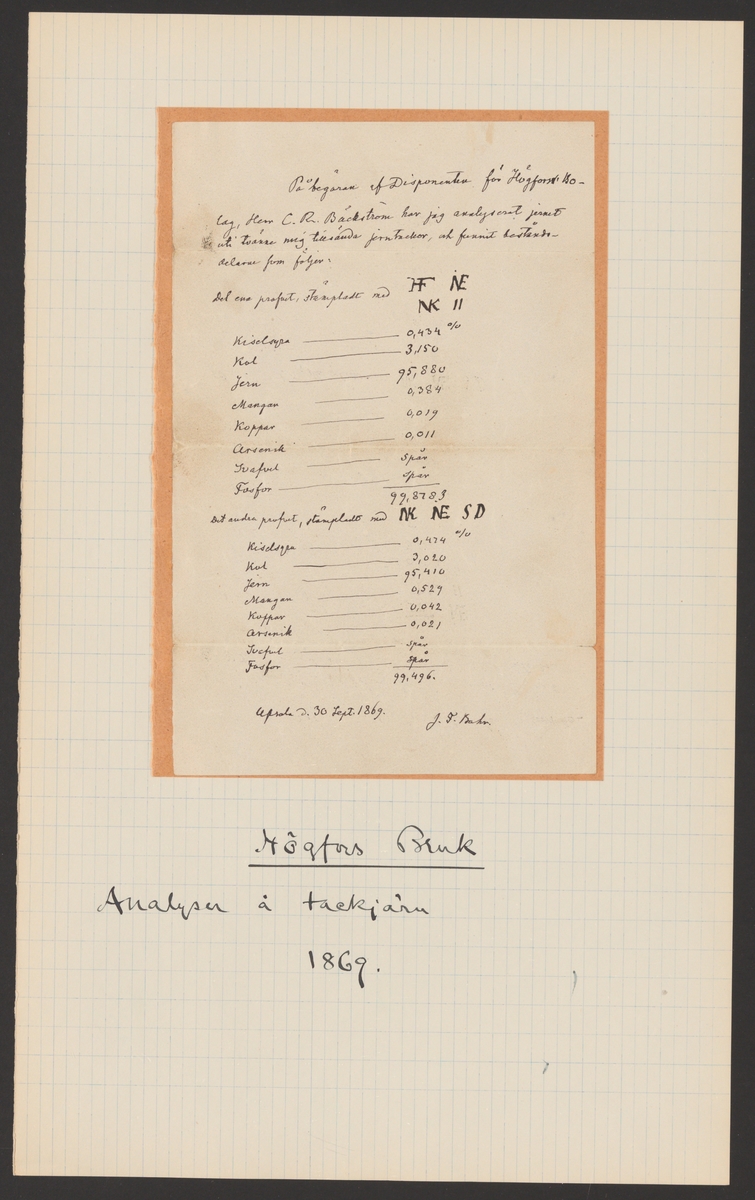 På begäran af Disponenten för Högfors Bo-
lag, Herr C. R. Bäckström har jag analyserat jernet
uti tvänne mig tillsända jerntackor, och funnit bestånds-
delarne som följer:
Det ena profvet, stämpladt med HF NE
NK II
Kiselsyra 0,434 %
Kol 3,150
Jern 95,880
Mangan 0,384
Koppar 0,019
Arsenik 0,011
Svafvel Spår
Fosfor Spår
99,878.3
Det andra profvet, stämpladt med NK NE SD
Kiselsyra 0,474 %
Kol 3,020
Jern 95,410
Mangan 0,529
Koppar 0,042
Arsenik 0,021
Svafvel Spår
Fosfor Spår
99,496.
Upsala d. 30 Sept. 1869.
J. F. Bahr.
Högfors Bruk
Analyser å tackjärn
1869.